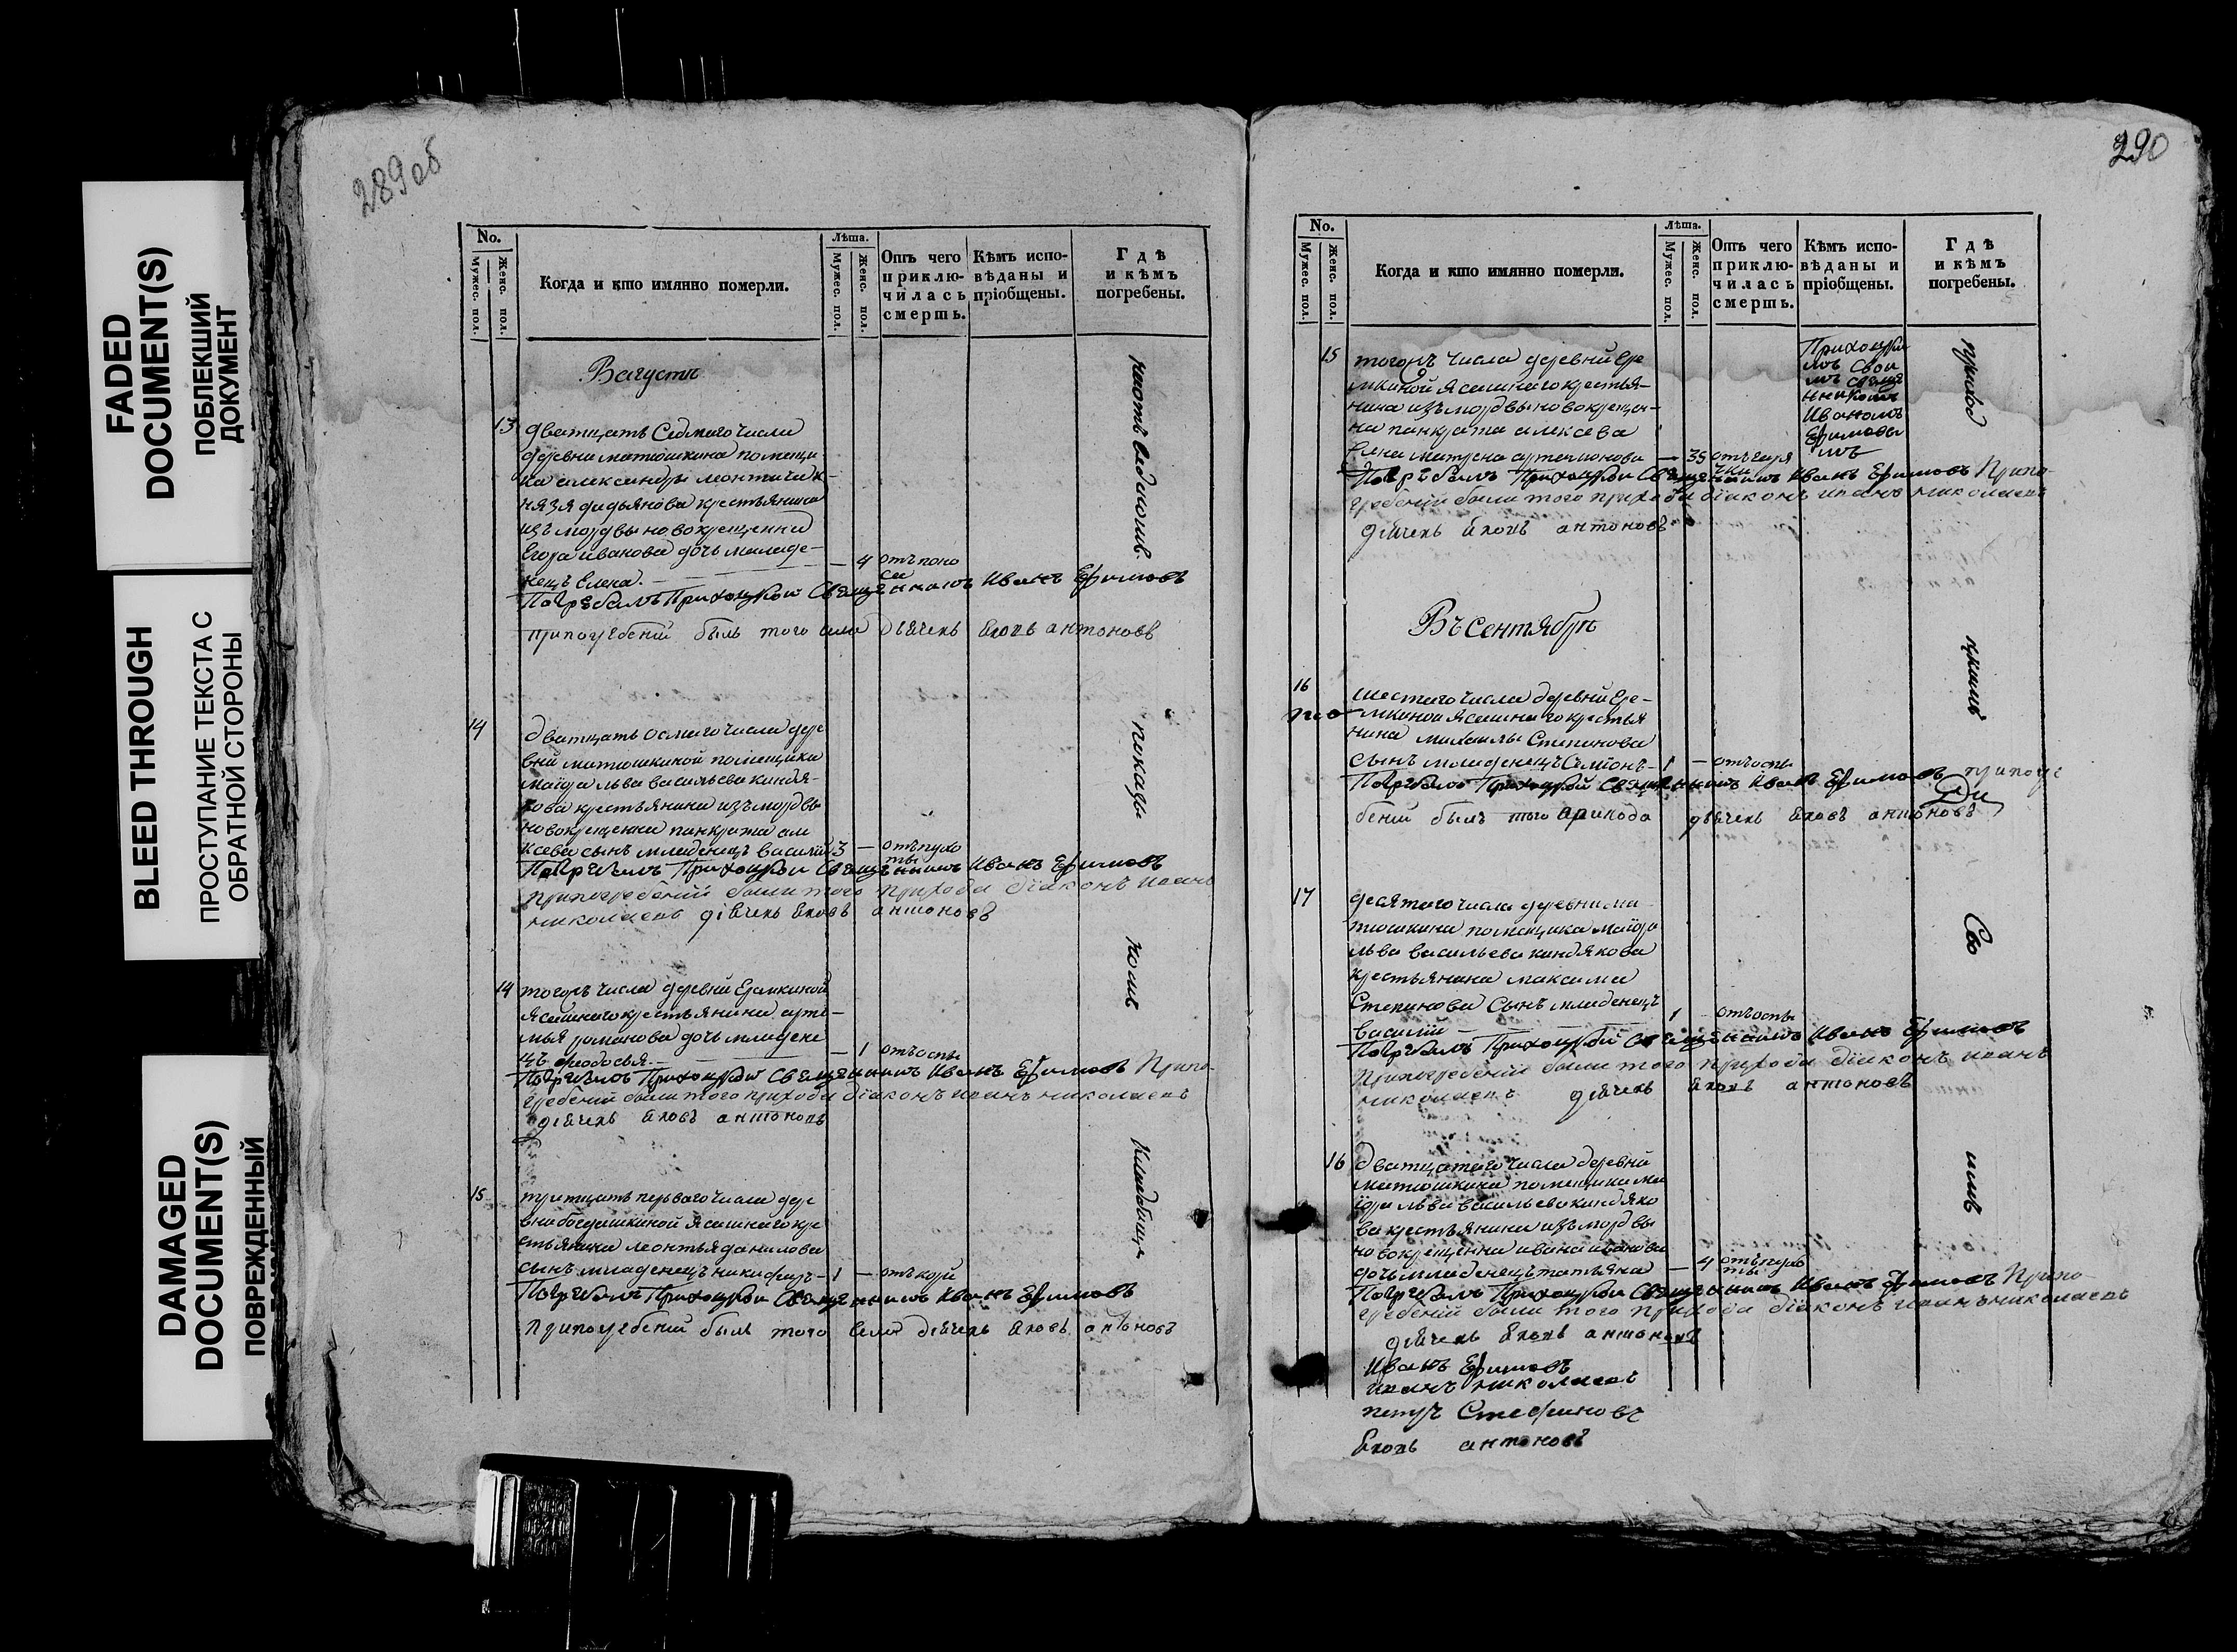 FADED
DOCUMENT(S)
ПОБЛЕКШИЙ
ДОКУМЕНТ
BLEED THROUGH
ПРОСТУПАНИЕ ТЕКСТА С
ОБРАТНОЙ СТОРОНЫ
DAMAGED
DOCUMENT(S)
ПОВРЕЖДЕННЫЙ
289 об
No.
Мужес. пол.
Женс. пол.
Когда и кто имянно померли.
Лѣта.
Мужес. пол.
Женс. пол.
Отъ чего
приклю-
чилась
смерть.
Кѣмъ испо-
вѣданы и
пріобщены.
Гдѣ
и кѣмъ
погребены.
Вагустѣ
13 дватцать Седмаго числа
деревни матюшкина помещи
ка александры леонтича к-
нязя дадьянова крестьянина
изъ мордвы новокрещенна
Егора иванова дочь младе-
нецъ Елена. — 4 отъ поно
са
Погребалъ Приходской Священникъ Иванъ Ефимовъ
припогребении былъ того села дьячекъ Яковъ антоновъ
14 дватцать осмаго числа дере
вни матюшкиной помещика
маиора льва васильева киндя-
кова крестьянина изъ мордвы
новокрещенна панкрата але
ксева сынъ младенецъ василий 3 — отъ пухо
ты
Погребалъ Приходской Священникъ Иванъ Ефимовъ
припогребении были того прихода диаконъ иванъ
николаевъ дьячекъ Яковъ антоновъ
14 тогожъ числа деревни Еремкиной
Ясашнаго крестьянина арте-
мья романова дочь младене
цъ феодосья — 1 отъ оспы
Погребалъ Приходской Священникъ Иванъ Ефимовъ Припо-
гребении были того прихода диаконъ иванъ николаевъ
дьячекъ Яковъ антоновъ
15 тритцать перваго числа дере
вни богдашкиной Ясашнаго кре
стьянина леонтья данилова
сынъ младенецъ никифоръ — 1 — отъ кори
Погребалъ Приходской Священникъ Иванъ Ефимовъ
припогребении былъ того села дьячекъ Яковъ антоновъ
кладбище
290
No.
Мужес. пол.
Женс. пол.
Когда и кто имянно померли.
Лѣта.
Мужес. пол.
Женс. пол.
Отъ чего
приклю-
чилась
смерть.
Кѣмъ испо-
вѣданы и
пріобщены.
Гдѣ
и кѣмъ
погребены.
15 тогожъ числа деревни Ере
мкиной Ясашнаго крестья-
нина изъ мордвы новокрещен-
на панкрата алексева
Жена матрена артемонова — 35 отъ горя
чки
Приходски
мъ Свои
мъ свяще
нникомъ
Иваномъ
Ефимовы
мъ
приход
Погребалъ Приходской Священникъ Иванъ Ефимовъ Припо-
гребении были того прихода диаконъ иванъ николаевъ
дьячекъ Яковъ антоновъ
Въ Сентябрѣ
16 шестаго числа деревни Ере-
мкиной Ясашнаго крестья
нина михаилы Степанова
сынъ младенецъ Симионъ — 1 — отъ оспы
Погребалъ Приходской Священникъ Иванъ Ефимовъ припогре
бении былъ того прихода дьячекъ Яковъ антоновъ
17 десятаго числа деревни ма
тюшкина помещика маиора
льва васильева киндякова
крестьянина максима
Степанова Сынъ младенецъ
василий 1 отъ оспы
Погребалъ Приходской Священникъ Иванъ Ефимовъ
Припогребении были того прихода диаконъ иванъ
николаевъ дьячекъ Яковъ антоновъ
16 дватцатаго числа деревни
матюшкина помещика ма
иора льва васильева киндяко
ва крестьянина изъ мордвы
новокрещенна ивана иванова
дочь младенецъ татьяна — 4 отъ пухо
ты
Погребалъ Приходской Священникъ Иванъ Ефимовъ Припо-
гребении были того прихода диаконъ иванъ николаевъ
дьячекъ Яковъ антоновъ
Иванъ Ефимовъ
иванъ николаевъ
петръ Стефановъ
Яковъ антоновъ